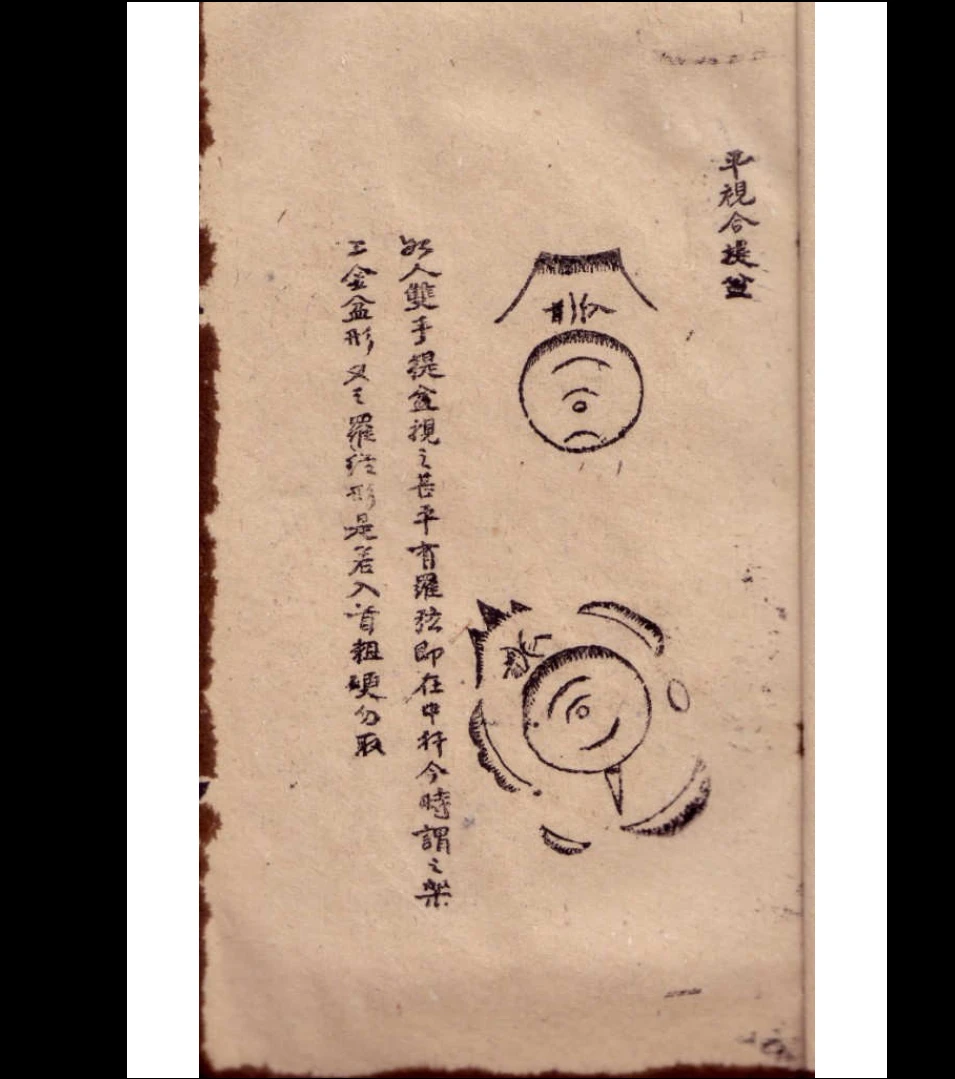 平視合提盆
如人雙手提盆視之甚平有羅弦即在中扦今時謂之架
上金盆形又之羅形是若入首粗硬勿取